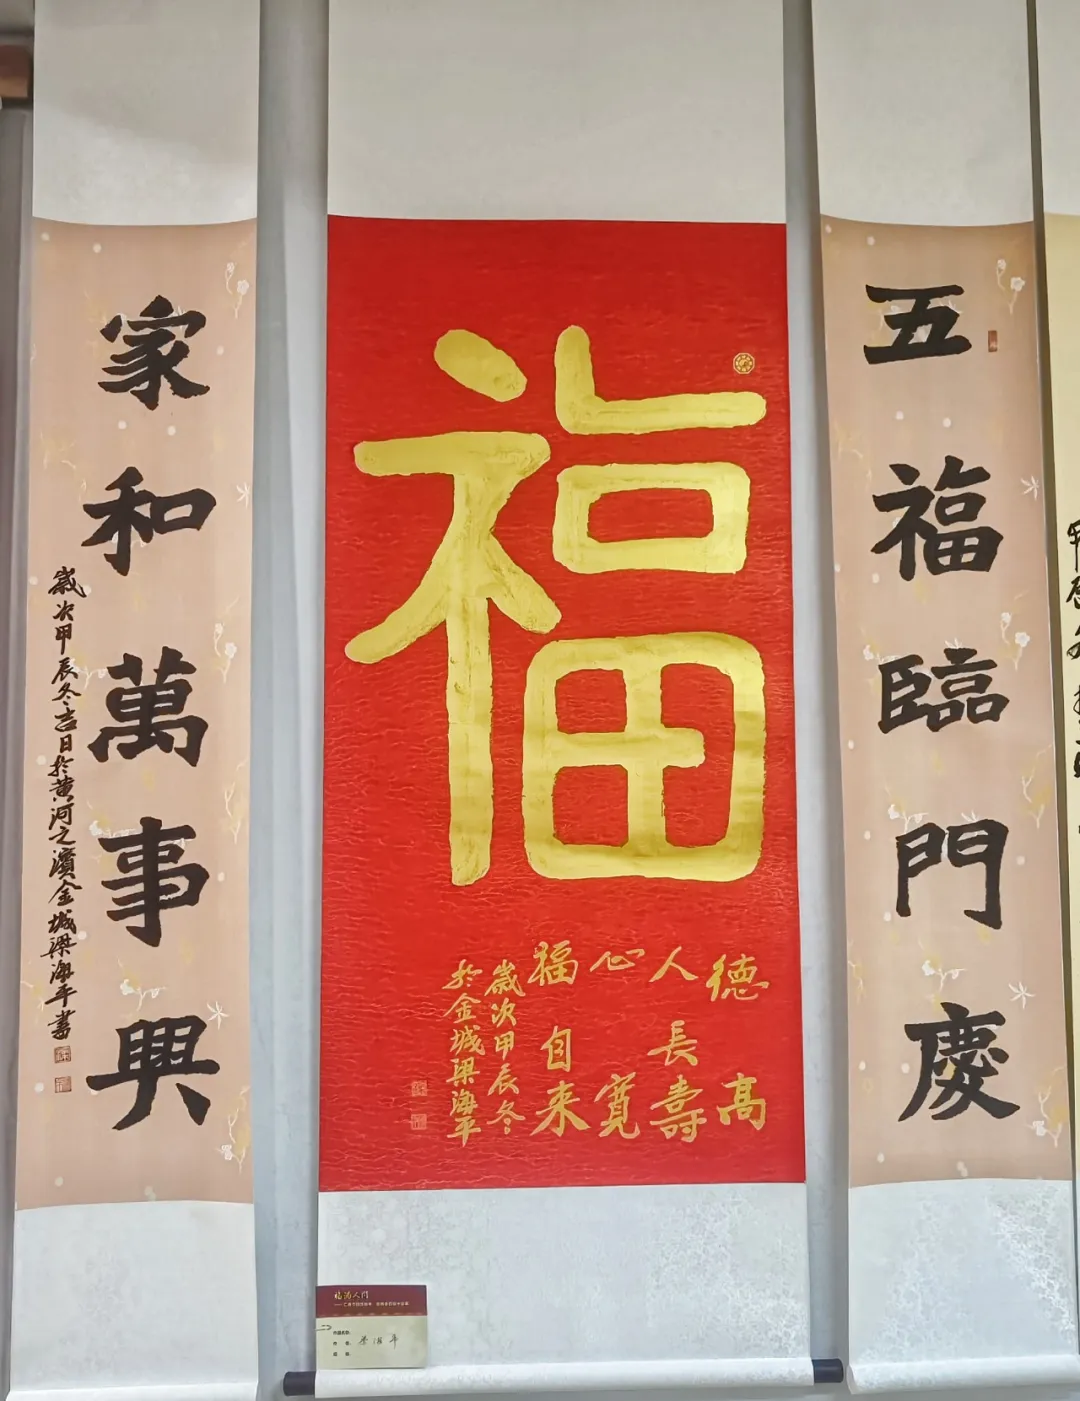 五福臨門慶
福
德高
人長壽
心寬
福自来
歲次甲辰冬
於金城梁海平
家和萬事興
歲次甲辰冬吉日於黄河之濱金城梁海平書
福满人间
梁海平